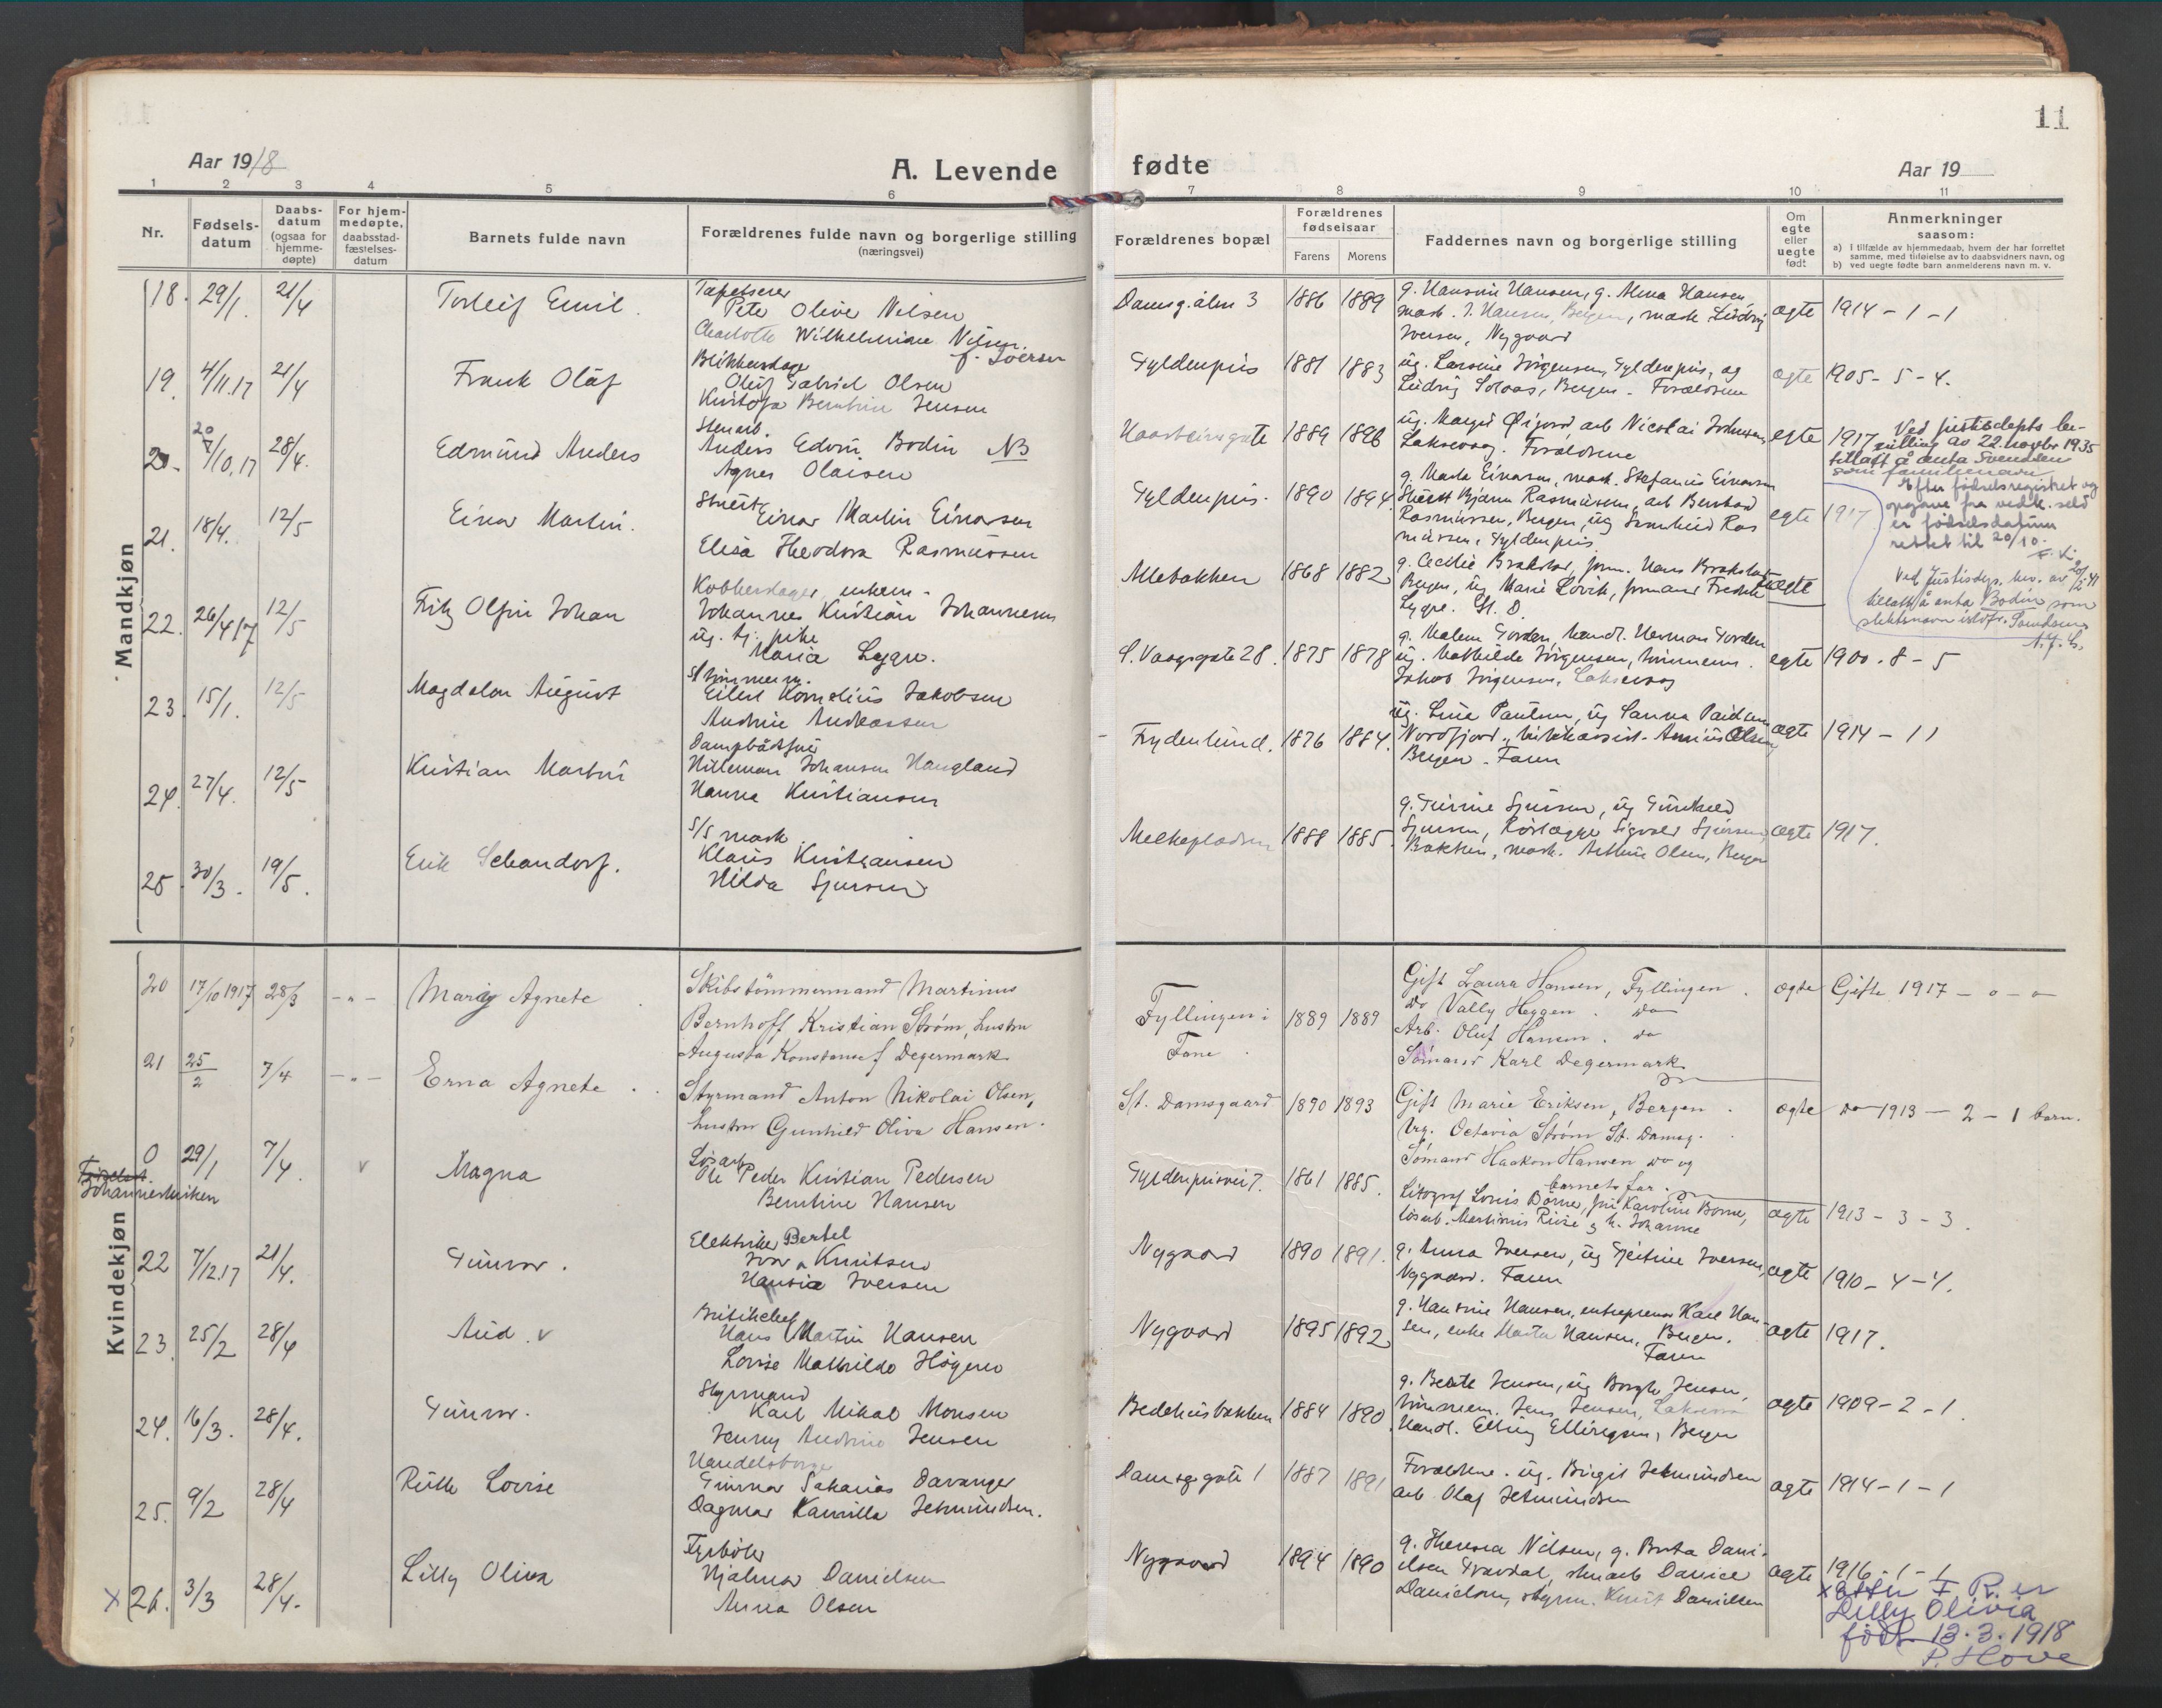 11
Aar 1918
A. Levende
fødte
Aar 19
1 2 3 4 5 6 7 8 9 10 11
Nr.
Fødsels-
datum
Daabs-
datum
(ogsaa for
hjemme-
døpte)
For hjem-
medøpte,
daabsstad-
fæstelses-
datum
Barnets fulde navn
Forældrenes fulde navn og borgerlige stilling
(næringsvei)
Forældrenes bopæl
Forældrenes
fødselsaar
Farens Morens
Faddernes navn og borgerlige stilling
Om
egte
eller
uegte
født
Anmerkninger
saasom:
a) I tilfælde av hjemmedaab, hvem der har forrettet
samme, med tilføielse av to daabsvidners navn, og
b) ved uegte fødte barn anmelderens navn m. v.
Mandkjøn
18. 29/1. 21/4 Torleif Emil.
Tapetserer
Peter Olive Nilsen
Charlotte Wilhelmine Nilsen
f. Iversen
Damsg.alm 3 1886 1889
g. Hansine Hansen, g. Alma Hansen,
mask. J. Hansen, Bergen, mask Ludvig
Iversen, Nygaard
egte 1914 - 1 - 1
19. 4/11.17 21/4 Frank Oluf
Blikkenslager
Oluf Gabriel Olsen
Kristofa Berntine Jensen
Gyldenpris 1881 1883
ug. Larsine Jörgensen, Gyldenpris, og
Ludvig Solaas, Bergen. Forældrene
egte 1905 - 5 - 4.
20. 20 7/10.17 28/4. Edmund Anders
Stenarb.
Anders Edvin Bodin NB
Agnes Olaisen
1889 1896
Laksevaag. Forældrene
egte 1917
Ved justisdepts be-
villing av 22. novbr 1935
tillatt å anta Svendsen
som familienavn
Efter fødselsregistret og
opgave fra vedk. selv
er fødselsdatum
rettet til 20/10.
Ved Justisdep. bev. av
tillatt å anta Bodin som
slektsnavn istdf.
21. 18/4. 12/5 Einar Martin.
Stuert
Einar Martin Einarsen
Elisa Theodora Rasmussen
Gyldenpris. 1890 1894.
g. Marta Einarsen, mask. Stefanus Einarsen
Stuert Bjarne Rasmussen, arb Berntsen
Rasmussen, Bergen, ug Gunhild Ras
mussen, Gyldenpris.
egte 1917
22. 26/4 17 12/5 Fritz Olfin Johan
Kobberslager, enkem.
Johannes Kristian Johannesen
ug. tj. pike
Maria Lygre.
Allebakken 1868 1882
Bergen, ug Marie Lövik, formand Fredrik
Lygre. St. D.
uegte
23. 15/1. 12/5 Magdalon August
Eilert Kornelius Jakobsen
Andrine Andreassen
S. Vaagsgate 28. 1875 1878
g. Malene Torden, handl. Herman Torden
ug. Mathilde Jörgensen, tömmerm.
Jakob Jörgensen, Laksevaag
egte 1900 - 8 - 5
24. 27/4. 12/5 Kristian Martin
Dampbådfører
Nilleman Johansen Haugland
Hanna Kristiansen
Frydenlund. 1876 1884.
Bergen. Faren
egte 1914 - 11
25. 30/3. 19/5. Erik Schandorf.
S/S mask
Klaus Kristiansen
Hilda Sjursen
Melkeplassen 1888 1885.
g. Gurine Sjursen, ug Gunhild
Sjursen, Rörlægger Sigvald Sjursen,
Bakken, mask. Arthur Olsen, Bergen
egte 1917.
Kvindekjøn
20 17/10 1917 28/3 - " - Mary Agnete
Skibstömmermand Martinus
Bernhoff Kristian Strøm, hustru
Augusta Konstanse f Degermark
Fyllingen i
Fane.
1889 1889
Gift Laura Hansen, Fyllingen.
do Vally Heggen. do
Arb. Oluf Hansen. do
Sömand Karl Degermark
ægte Gifte 1917 - o - o
21 25/2 7/4 - " - Erna Agnete.
Styrmand Anton Nikolai Olsen,
hustru Gunhild Oliva Hansen.
St. Damsgaard 1890 1893
Gift Marie Eriksen, Bergen.
Ug. Octavia Strøm St. Damsg.
Sömand Haakon Hansen do og
barnets far.
ægte do 1913 - 2 - 1 barn.
Johanneskirken
0 29/1 7/4. v Magna
Lösarb
Ole Peder Kristian Pedersen
Berntine Hansen
Gyldenprisvei 7. 1861 1885.
Litograf Louis Börne, fru Karoline Börne,
lösarb. Martinius Riise og h. Johanne
ægte 1913 - 3 - 3.
22 7/12.17 21/4. Gunvor.
Elektriker Bertel
Ivar Knutsen
Hansia Iversen
Nygaard 1890 1891.
g. Anna Iversen, ug Gjertine Iversen,
Nygaard. Faren
ægte 1910 - 4 - 4.
23. 25/2 28/4 Aud. v
Hans Martin Hansen
Lovise Mathilde Högeren
Nygaard 1895 1892
g. Hansine Hansen, entreprenør Karl Han-
sen, enke Marta Hansen, Bergen.
Faren
ægte 1917.
24. 16/3. 28/4. Gunvor.
Styrmand
Karl Mikal Monsen
Jenny Andrine Jensen
Bedehusbakken 1884 1890
g. Berte Jensen, ug Borghi Jensen,
tömmerm. Jens Jensen, Laksevaag
Handl. Elling Ellingsen, Bergen
ægte 1909 - 2 - 1.
25. 9/2 28/4 Ruth Lovise
Gunnar Sakarias Davanger
Dagmar Kamilla Jetmundsen.
Damsg.gate 1 1887 1891
Forældrene. ug. Birgit Jetmundsen
arb. Olaf Jetmundsen
ægte 1914 - 1 - 1
x 26. 3/3 28/4. Lilly Oliva
Fyrböter
Hjalmar Danielsen
Anna Olsen
Nygaard 1894 1890
g. Theresea Nilsen, g. Berta Dani-
elsen Travdal, stenarb Daniel
Danielsen, styrm. Knut Danielsen
ægte 1916 - 1 - 1
x Efter F. R. er
Lilly Olivia
født 13.3.1918
P. Hove